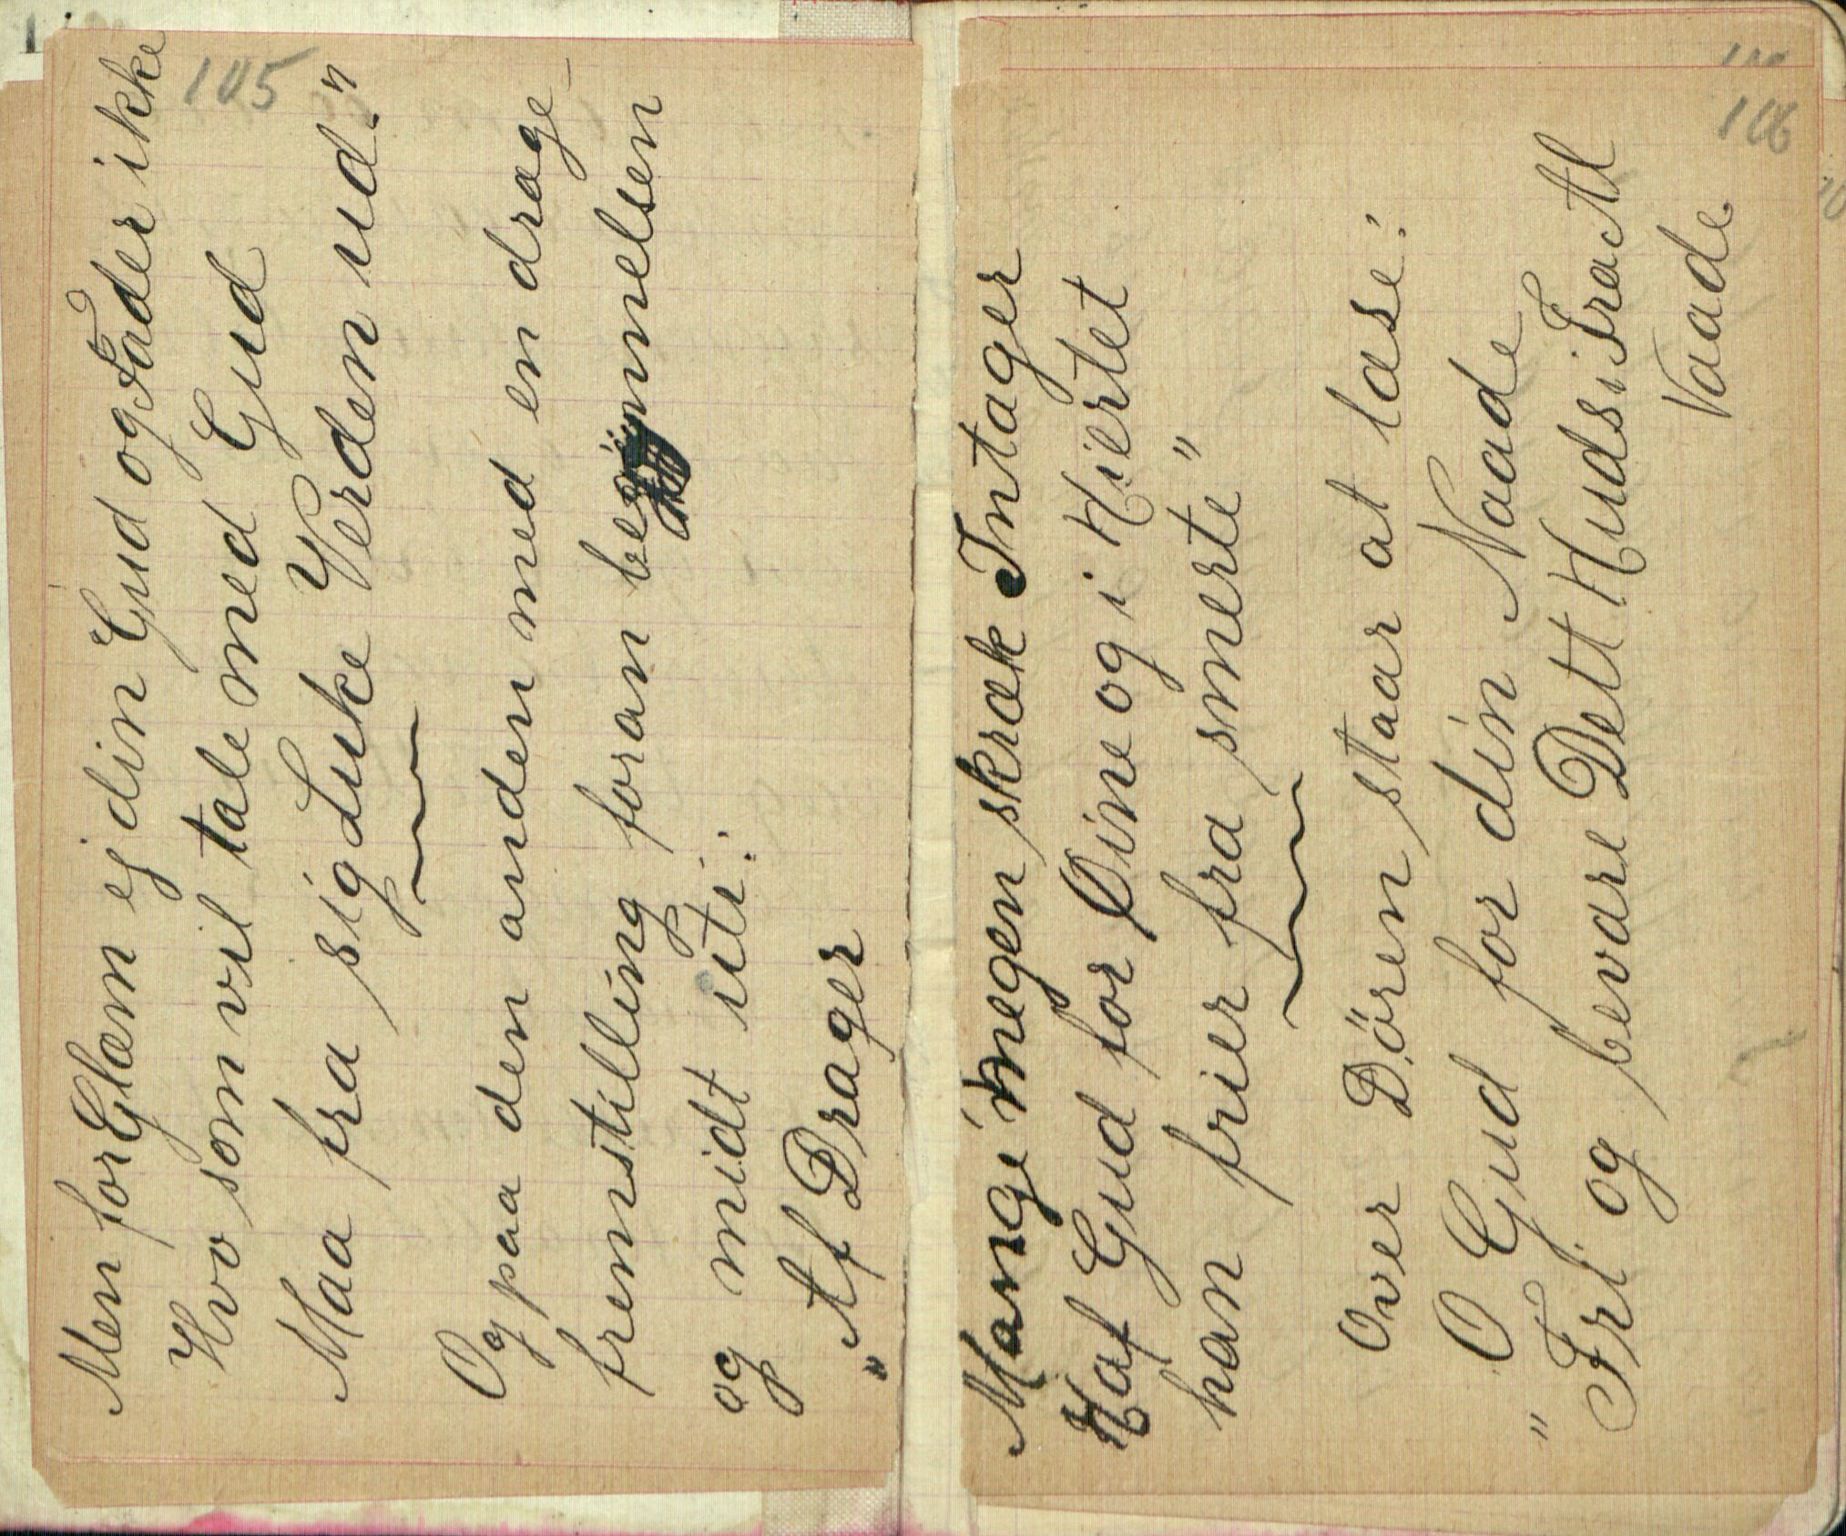 105
Men for Glæm ej din Gud og Fader ikke
Hvo som vil tale med Gud
Maa fra sig Luke Verden ud."
Og paa den anden med en drage-
fremstilling foran begÿnnelsen
og midt uti:
"Af Drager
106
Mange megen skræk Intager
Haf Gud for Øine og i Hiertet
han frier fra smerte"
Over Dören staar at læse:
O Gud for din Naade
"Fri og bevare Dett Huds i Fra All
Vaade